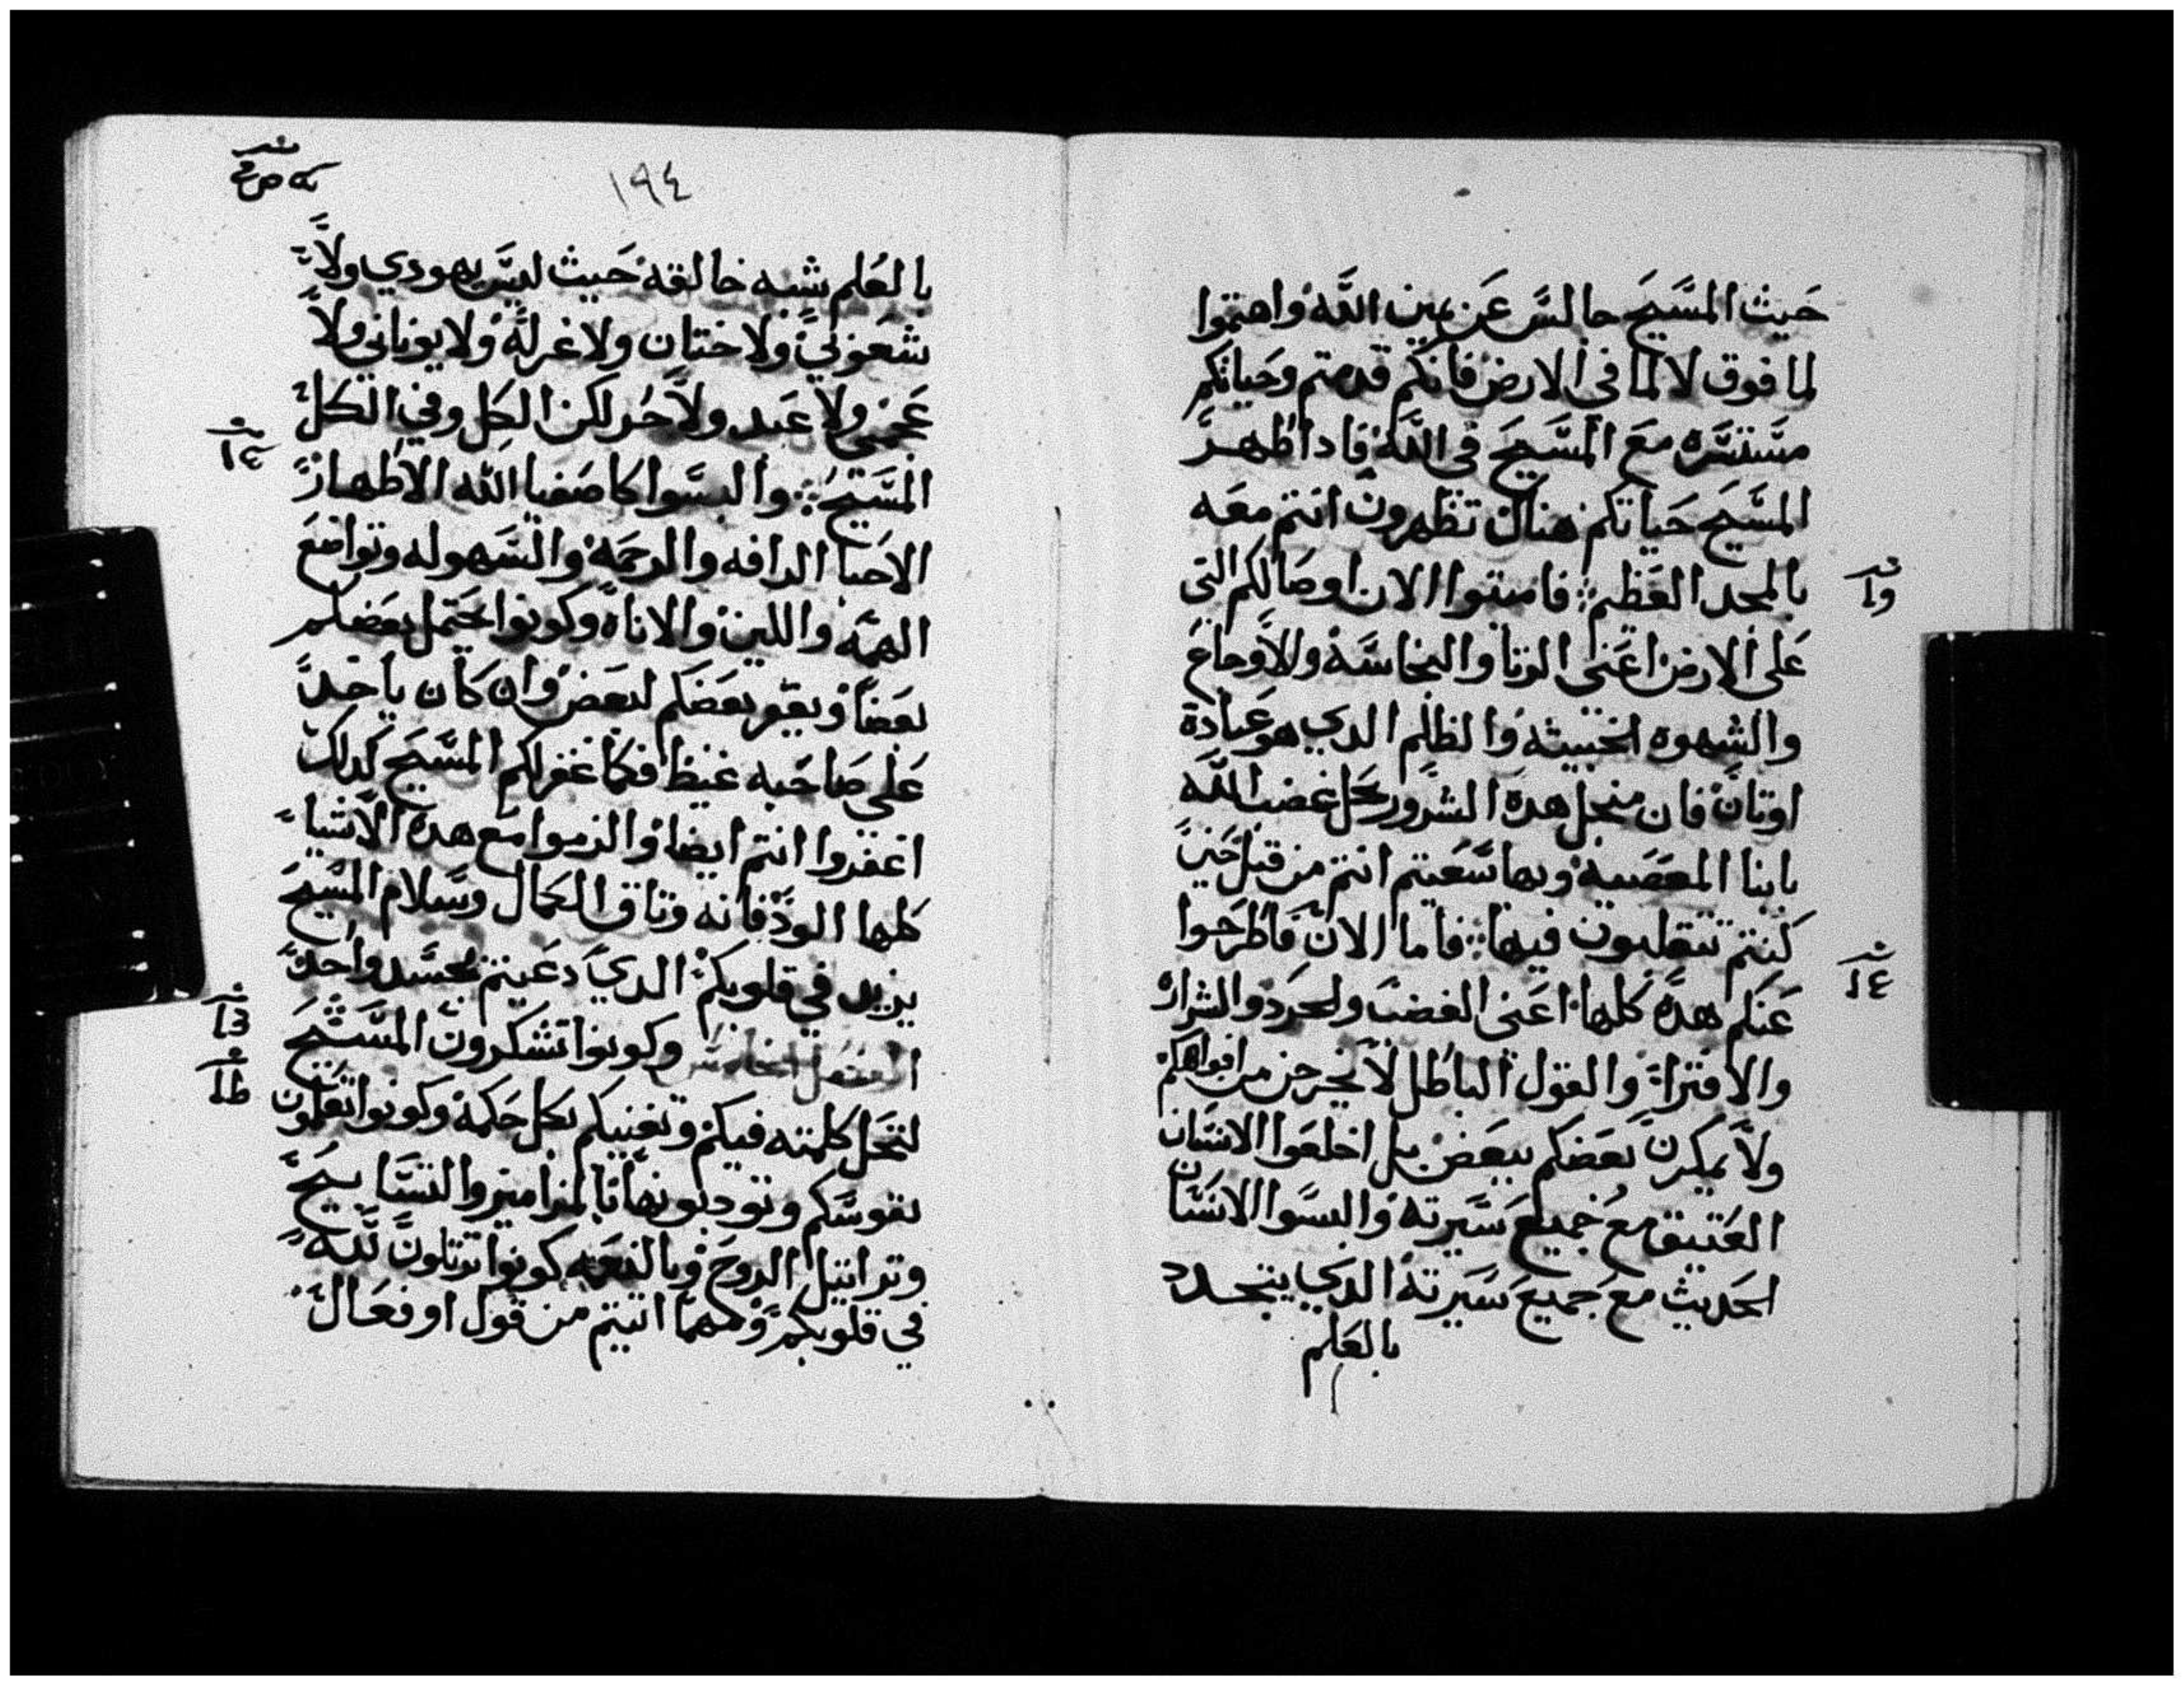 حيث المسيح جالس عن يمين الله واهتموا
لما فوق لا لما في الارض فانكم قدمتم وحياتكم
مستتره مع المسيح في الله فاذا ظهر
المسيح حياتكم هناك تظهرون انتم معه
بالمجد العظيم ؛ فاميتوا الان اوصالكم التي
على الارض اعنى الزنا والنجاسه والاوجاع
والشهوه الخبيثه والظلم الدي هو عبادة
اوتان فان منجل هده الشرور يحل غضب الله
بابنا المعصيه وبها سعيتم انتم من قبل حين
كنتم تتقلبون فيها ؛ فاما الان فاطرحوا
عنكم هده كلها اعنى الغضب ولحرد والشراره
والافترا والقول الباطل لا يخرجن من افواهكم
ولا يمكرن بعضكم ببعض بل اخلعوا الانسان
العتيق مع جميع سيرته والبسوا الانسان
الحديث مع جميع سيرته الدي يتجدد
بالعلم
١٩٤
بالعلم شبه خالقه حيث ليس يهودي ولا
شعوبي ولا ختان ولا غرله ولا يوناني ولا
عجمي ولا عبد ولا حر لكن الكل وفي الكل
المسيح ؛ والبسوا كاصفيا الله الاطهار
الاحبا الرافه والرحمه والسهوله وتواضع
الهمه واللين والاناه وكونوا يحتمل بعضكم
بعضا ويغفر بعضكم لبعض وان كان باحد
على صاحبه غيظ فكما غفر لكم المسيح كدلك
اغفروا انتم ايضا والزموا مع هده الاشيا
كلها الود فانه وتاق الكمال وسلام المسيح
يزيد في قلوبكم الدي دعيتم بجسد واحد
الفصل الخامس وكونوا تشكرون المسيح
لتحل كلمته فيكم وتغنيكم بكل حكمه وكونوا تعلمون
نفوسكم وتودبونها بالمزامير والتسابيح
وتراتيل الروح وبالنعمه كونوا ترتلون لله
في قلوبكم ومهما اتيتم من قول او فعال